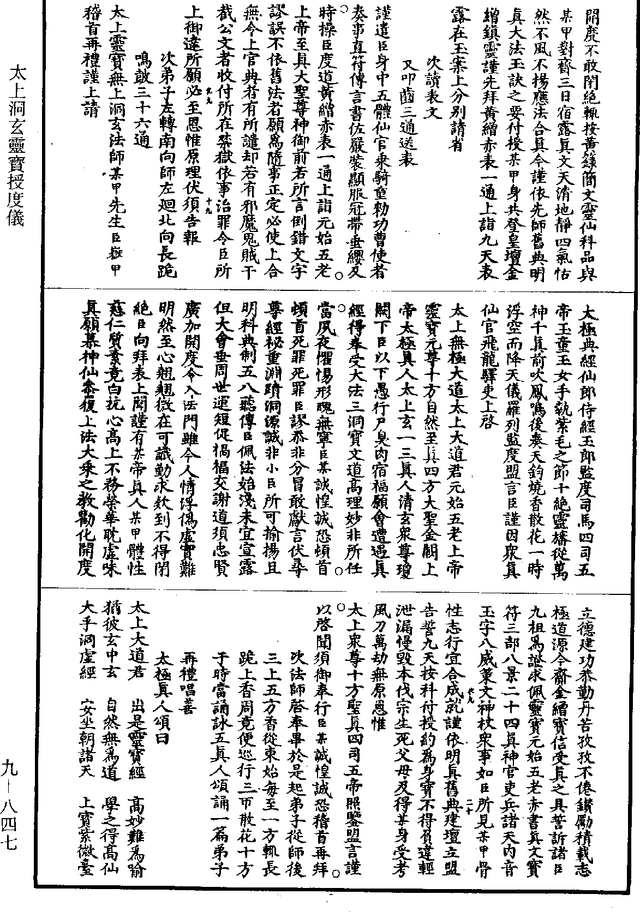 開度不敢閉絕輒按黃籙簡文靈仙科品與
某甲對齋三日宿露真文天清地靜四氣恬
然不風不揚應法合真今謹依先師舊典明
真大法玉訣之要付授某甲身共登皇壇金
繒鎮靈謹先拜黃繒赤表一通上詣九天表
露在玉案上分別請省
次讀表文
又叩齒三通送表
謹遣臣身中五體仙官乘騎童勑功曹使者
奏事直符傳言書佐嚴裝顯服冠帶垂纓及
時操臣度道黃繒赤表一通上詣元始五老
上帝至真大聖尊神御前若所言倒錯文字
謬誤不依舊法者願為隨事正定必使上合
無令上官典者有所譴却若有邪魔鬼賊干
截公文者收付所在禁獄依事治罪令臣所
上御達所願必至恩惟原理伏須告報
次弟子左轉南向師左迴北向長跪
鳴鼓三十六通
太上靈寶無上洞玄法師某甲先生臣某甲
稽首再禮謹上請
太極典經仙郎侍經玉郎監度司馬四司五
帝玉童玉女手執紫毛之節十絕靈旛從萬
神千真前吹鳳鳴後奏天鈞燒香散花一時
浮空而降天儀羅列監度盟言臣謹因眾真
仙官飛龍驛吏上啓
太上無極大道太上大道君元始五老上帝
靈寶元尊十方自然至真四方大聖金闕上
帝太極真人太上玄一三真人清玄眾尊瓊
闕下臣以下愚行尸臭肉宿福願會遭遇真
經得奉受大法三洞寶文道高理妙非所任
當夙夜懼惕形魄無寧臣某誠惶誠恐頓首
頓首死罪死罪臣謬忝非分冒敢獻言伏尋
尊經祕重淵蹟洞源誠非小臣所可揄揚且
明科典制五八聽傳臣佩法始淺未宜宣露
但大會垂周世運短促禍福交謝道須忠賢
廣加開度令入法門雖今人情浮偽虛實難
明然至心翹翹徵在可識勤求款到不得閉
絕臣向拜表上聞謹有某帝真人某甲體性
慈仁質素竟白抗心高上不務榮華耽虛味
真願慕神仙參復上法大乘之教勸化開度
立德建功恭勤丹苦孜孜不倦鑽勵積載志
極道源今齋金繒寶信受真之具誓訴諸臣
九祖為證求佩靈寶元始五老赤書真文寶
符三部八景二十四真神官吏兵諸天內音
玉字八威策文神杖眾事如臣所見某甲骨
性志行宜合成就謹依明真舊典建壇立盟
告誓九天按科付授約為身寶不得負違輕
泄漏慢毀本伐宗生死父母及得某身受考
風刀萬劫無原恩惟
太上眾尊十方聖真四司五帝照鑒盟言謹
以啓聞須御奉行臣某誠惶誠恐稽首再拜
次法師啓奉畢於是起弟子從師後
三上五方香從東始每至一方輒長
跪上香周竟便巡行三帀散花十方
于時當誦詠五真人頌誦一篇弟子
再禮唱善
太極真人頌曰
太上大道君 出是靈寶經 高妙難為喻
猶彼玄中玄 自然無為道 學之得高仙
大乎洞虛經 安坐朝諸天 上寶紫微臺
太上洞玄靈寶授度儀
九－八四七